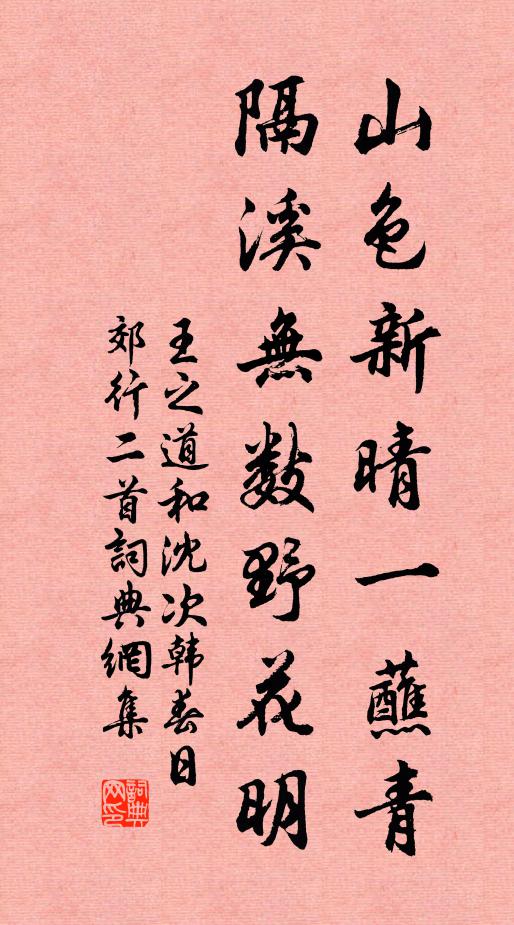 山色新晴一蘸青
隔溪無數野花明
王之道和沈次韩春日
郊行二首詞典網集
詞典网印